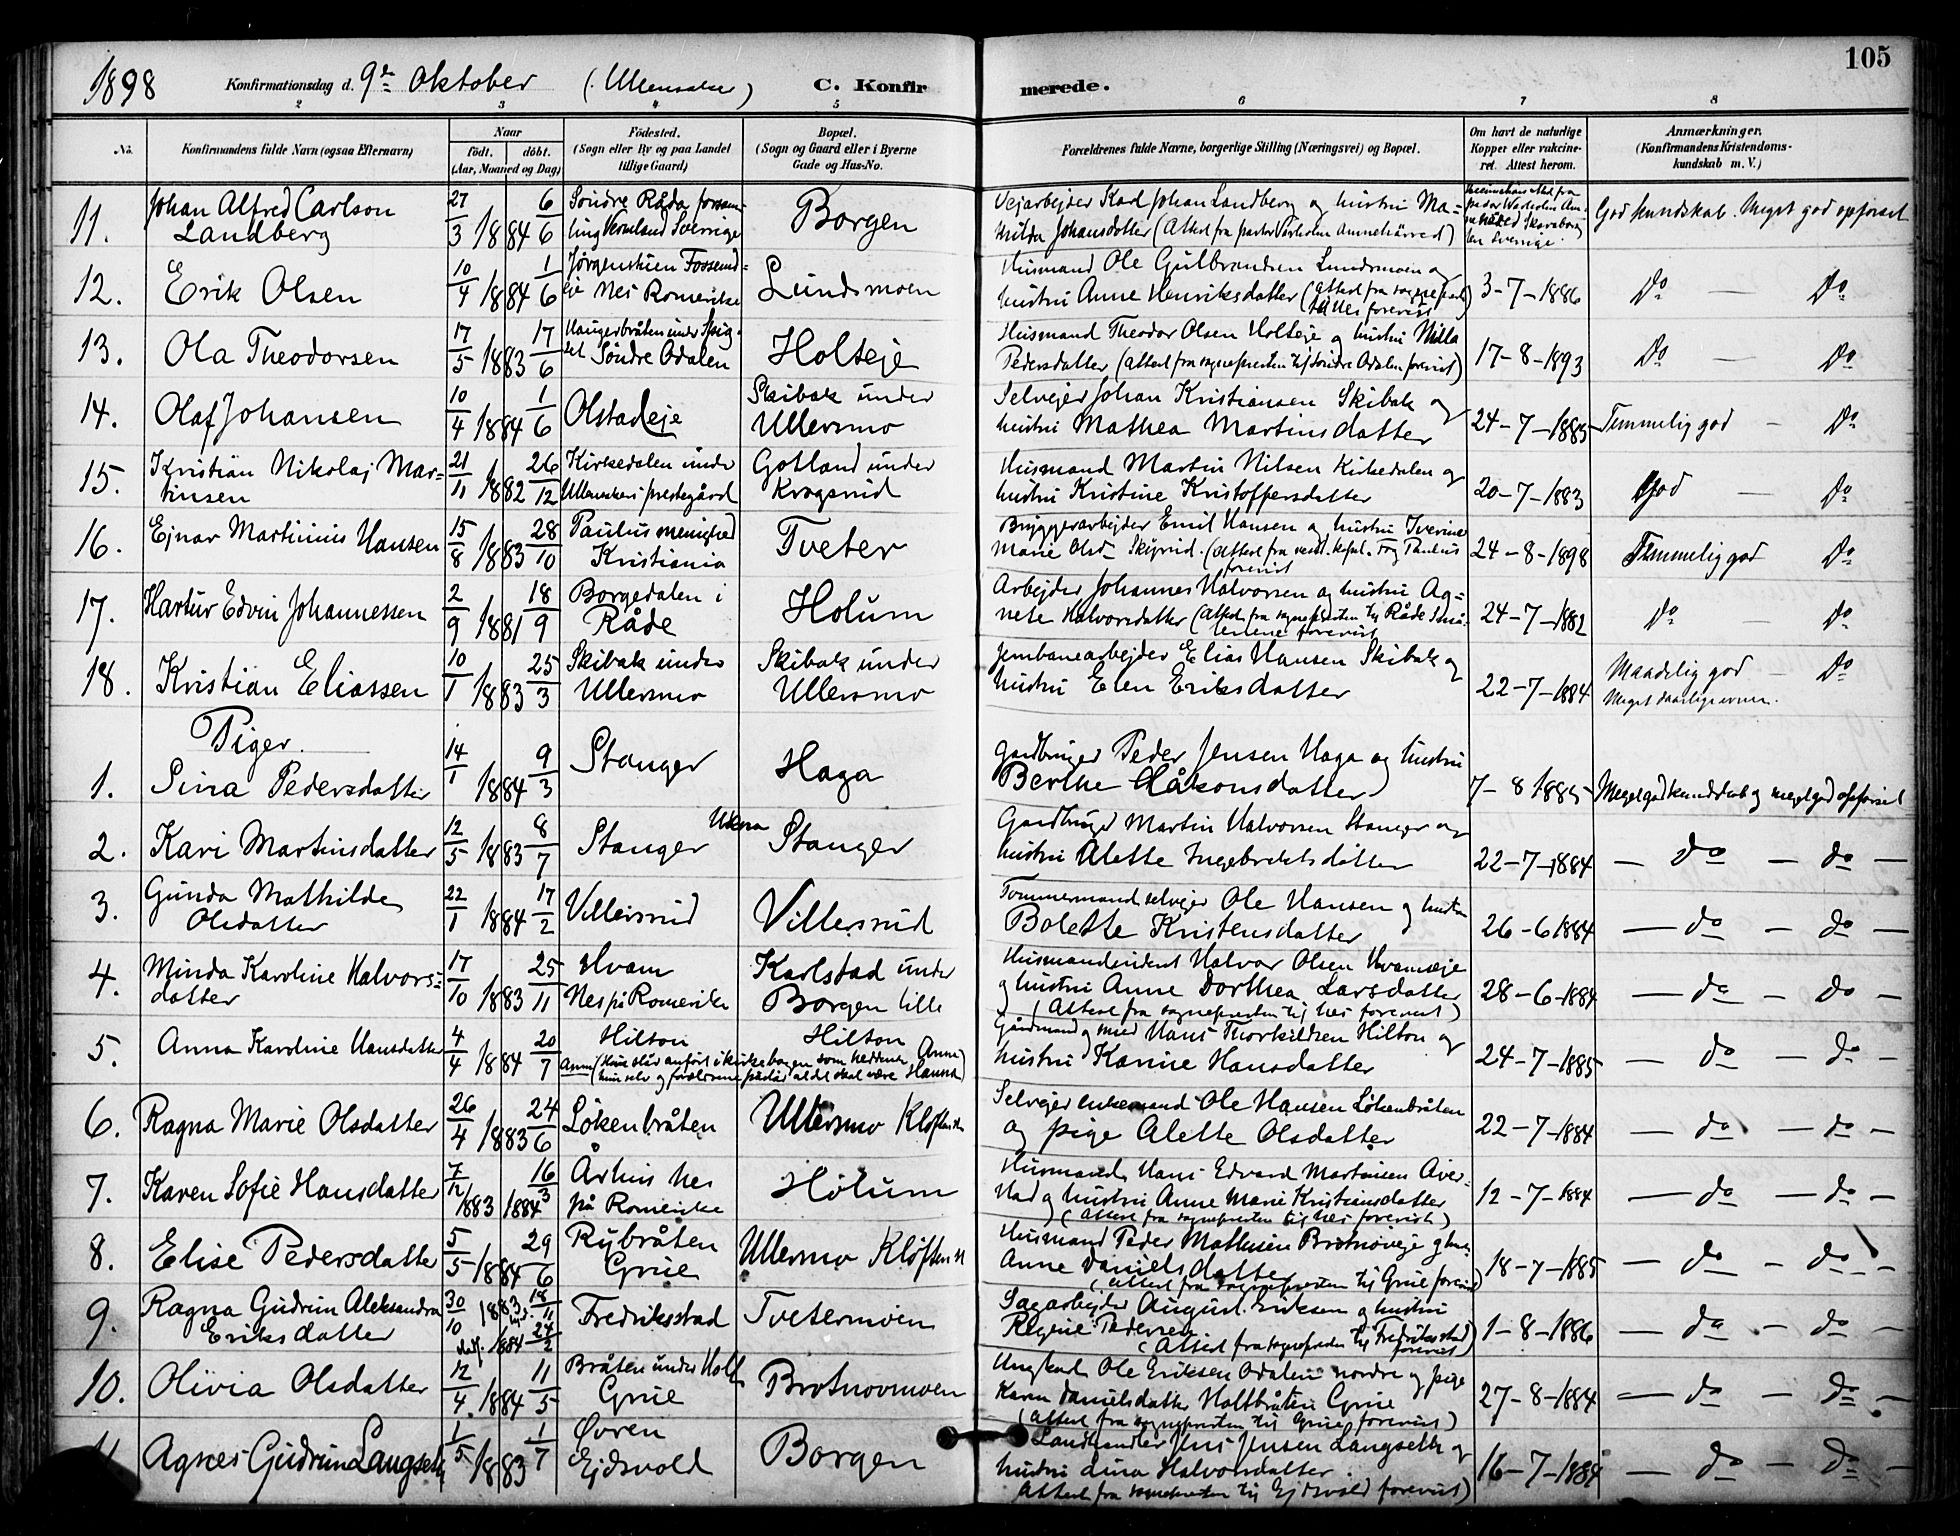 105
1898 Konfirmationsdag d. 9de Oktober (Ullensaker) C. Konfirmerede.
2 3 4 5 6 7 8
No. Konfirmandens fulde Navn (ogsaa Efternavn) Naar født. døbt. (Aar, Maaned og Dag) Fødested. (Sogn eller By og paa Landet tillige Gaard) Bopæl. (Sogn og Gaard eller i Byerne Gade og Hus-No. Forældrenes fulde Navne, borgerlige Stilling (Næringsvei) og Bopæl. Om havt de naturlige Kopper eller vaccineret. Attest herom. Anmærkninger. (Konfirmandens Kristendomskundskab m. V.)
11. Johan Alfred Carlson Landberg 27/3 1884 6/6 Söndre Råda Vermland Sverrige Borgen Vejarbejder Karl Johan Landberg og hustru Mathilda Johansdatter (Attest fra pastor God kundskab. Meget god opførsel
12. Erik Olsen 10/4 1884 1/6 Nes Romerike Lundsmoen Husmand Ole Gulbrandsen Lundsmoen og hustru Anne Henriksdatter (Attest fra sognepresten til Nes forevist) 3-7-1886 Do — Do
13. Ola Theodorsen 17/5 1883 17/6 Haugerbråten under Söndre Odalen Holteje Husmand Theodor Olsen Holteje og hustru Milla Pedersdatter (Attest fra sognepresten til söndre Odalen forevist) 17-8-1893 Do — Do
14. Olaf Johansen 10/4 1884 1/6 Olstadeje Skibak under Ullersmo Selvejer Johan Kristiansen Skibak og hustru Mathea Martinsdatter 24-7-1885 Temmelig god — Do
15. Kristian Nikolaj Martinsen 21/11 1882 26/12 Kirkedalen under Ullensakers prestegård Gotland under Krogsrud Husmand Martin Nilsen Kirkedalen og hustru Kristine Kristoffersdatter 20-7-1883 God — Do
16. Ejnar Martinius Hansen 15/8 1883 28/10 Paulus menighed Kristiania Tveter Bryggerarbejder Emil Hansen og hustru Iverine Marie Olsd (Attest fra Paulus forevist 24-8-1898 Temmelig god Do
17. Hartur Edvin Johannessen 2/9 1881 18/9 Borgedalen i Råde Holum Arbejder Johannes Halvorsen og hustru Agnete Halvorsdatter (Attest fra sognepresten til Råde Smålenene forevist 24-7-1882 Do — Do
18. Kristian Eliassen 10/1 1883 25/3 Skibak under Ullersmo Skibak under Ullersmo Jernbanearbejder Elias Hansen Skibak og hustru Elen Eriksdatter 22-7-1884 Maadelig god — Do Meget daarlige evner.
Piger.
1. Sina Pedersdatter 14/1 1884 9/3 Stanger Haga Gardbruger Peder Jensen Haga og hustru Berthe Håkonsdatter 7-8 1885 Meget god kundskab og meget god opførsel
2. Kari Martinsdatter 12/5 1883 8/7 Stanger Stanger Gardbruger Martin Halvorsen Stanger og hustru Alette Ingebretsdatter 22-7-1884 — do — do —
3. Gunda Mathilde Olsdatter 22/1 1884 17/2 Villersrud Villersrud Tømmermand selvejer Ole Hansen og hustru Bolette Kristensdatter 26-6 1884 — do — do —
4. Minda Karoline Halvorsdatter 17/10 1883 25/11 Hvam Nes på Romerike Karlstad under Borgen lille Halvor Olsen Hvamseje og hustru Anne Dorthea Larsdatter (Attest fra sognepresten til Nes forevist) 28-6-1884 — do — do —
5. Anna Karoline Hansdatter 4/4 1884 20/7 Hilton Hilton Hans Thorkildsen Hilton og hustru Karine Hansdatter 24-7-1885 — do — do —
Anm (Hun står anført i kirkebogen som heddende Anna, hun selv og forældrene påstår at det skal være Hanna)
6. Ragna Marie Olsdatter 26/4 1883 24/6 Lökenbråten Ullersmo Kløften Selvejer enkemand Ole Hansen Lökenbråten og pige Alette Olsdatter 22-7-1884 — do — do —
7. Karen Sofie Hansdatter 7/12 1883 16/3 1884 Århus Nes på Romerike Holum Husmand Hans Edvard Martinsen og hustru Anne Marie Kristiansdatter (Attest fra sognepresten til Nes forevist) 12-7-1884 — do — do —
8. Elise Pedersdatter 5/5 1884 29/6 Rybråten Grue Ullersmo Kløften Husmand Peder Mathisen Anne Danielsdatter (Attest fra sognepresten til Grue forevist) 18-7-1885 — do — do —
9. Ragna Gudrun Aleksandra Eriksdatter 30/10 1883 18/11 1884 24/2 Fredriksstad Tvetermoen Sagarbejder August Eriksen og hustru Regine Pedersen (Attest fra sognepresten til Fredriksstad forevist) 1-8-1886 — do — do —
10. Olivia Olsdatter 12/4 1884 11/5 Bråten under Holt Grue Brotnovmoen Ungkarl Ole Eriksen Odalen nordre og pige Karen Danielsdatter Holtbråten Grue (Attest fra sognepresten til Grue forevist) 27-8-1884 — do — do —
11. Agnes Gudrun Langseth 1/5 1883 1/7 Øvren Ejdsvold Borgen Landhandler Jens Jensen Langseth og hustru Lina Halvorsdatter. Attest fra sognepresten til Ejdsvold forevist) 16-7-1884 — do — do —